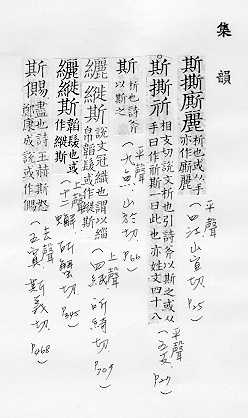 集韻
斯撕廝 析也或从手亦作廝 平聲 山宜切 P.25
斯撕 相支切說文析也引詩斧以斯之或从手 斯一曰此也亦姓文四十八 平聲(五支 P.27
斯 析也詩斧以斯之 平聲(九魚)山於切 P.66
纚縰斯 說文冠織也謂以緇帛韜髮或作縰斯 上聲(四紙)所綺切 P.309
纚縰斯 韜髮也或作縰斯 上聲(十二蟹)所蟹切 P.345
斯儩 盡也詩王赫斯怒鄭康成說或作儩 去聲(五寘)斯義切 P.468